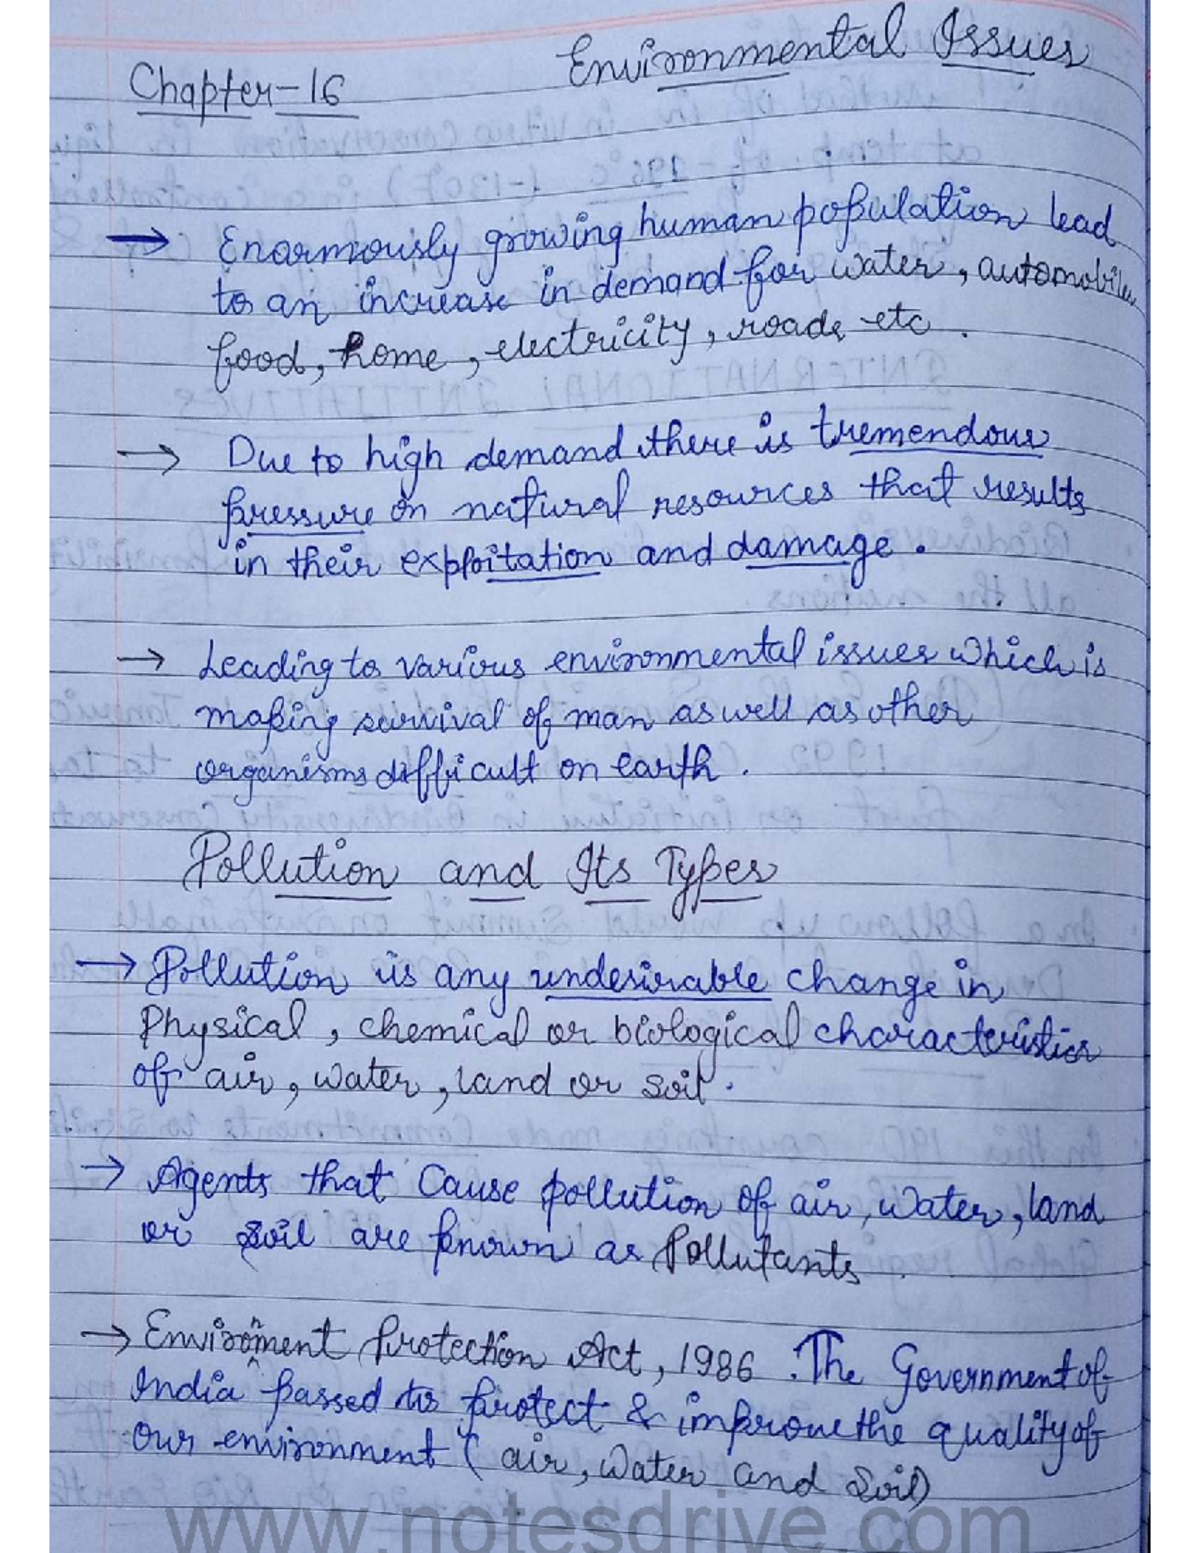 Environmental Issues
Chapter-16
→ Enormously growing human population lead
to an increase in demand for water, automobiles
food, home, electricity, roads etc.
→ Due to high demand there is tremendous
pressure on natural resources that results
in their exploitation and damage.
→ Leading to various environmental issues which is
making survival of man as well as other
organisms difficult on earth.
Pollution and Its Types
→ Pollution is any undesirable change in
Physical, chemical or biological characteristics
of air, water, land or soil.
→ Agents that cause pollution of air, water, land
or soil are known as Pollutants.
→ Environment Protection Act, 1986. The Government of
India passed to protect & improve the quality of
our environment (air, water and soil)
www.notesdrive.com